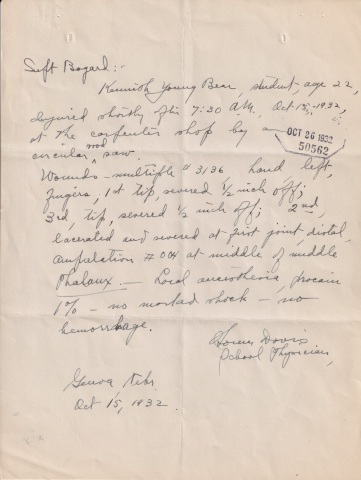 Supt Bogard:-
Kenneth Young Bear, student, age 22,
injured shortly after 7:30 A.M., Oct 15, 1932,
at the carpenter shop by a
OCT 26 1932
50562
circular wood saw.
Wounds - multiple # 3136, hand, left,
fingers, 1st tip severed 1/2 inch off;
3rd, tip, severed 1/2 inch off; 2nd,
lacerated and severed at first joint, distal,
amputation # 004 at middle of middle
Phalanx. - Local anaesthesia, procain
1% - no marked shock - no
hemorrhage.
Davis
School Physician,
Genoa, Nebr.
Oct 15, 1932.